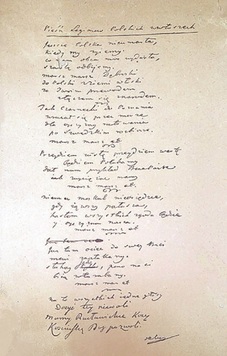 Pieśń Legionów Polskich we Włoszech
Jeszcze Polska nie umarła,
kiedy my żyjemy.
co nam obca moc wydarła,
szablą odbijemy.
marsz marsz Dąbrowski
do Polski z ziemi włoski
za Twoim przewodem
złączem się z narodem.
Jak Czarnecki do Poznania
wracał się przez morze
dla ojczyzny ratowania
po szwedzkim rozbiorze.
marsz marsz etc
Przejdziem Wisłę przejdziem Wartę
będziem Polakami
dał nam przykład Bonaparte
jak zwyciężać mamy
marsz marsz etc.
niemiec moskal nie osiędzie,
gdy jąwszy pałasza,
hasłem wszystkich zgoda będzie
y ojczyzna nasza.
marsz marsz etc
Już tam ojciec do swej Basi
mówi zapłakany:
słuchaj jeno, pono nasi
biją w tarabany.
marsz marsz etc
na to wszystkich jedne głosy
Dosyć tej niewoli
mamy Racławickie Kosy
Kościuszkę Bóg pozwoli